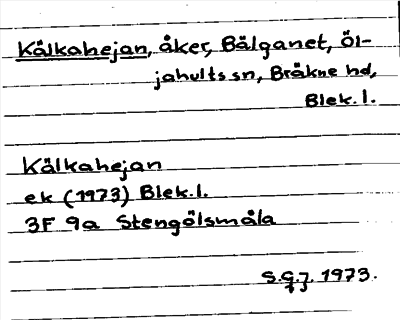 Kålkahejan, åker, Bälganet, Öl-
jahults sn, Bräkne hd,
Blek. l.
Kålkahejan
ek (1973) Blek. l.
3F 9a Stengölsmåla
S.G.J. 1973.